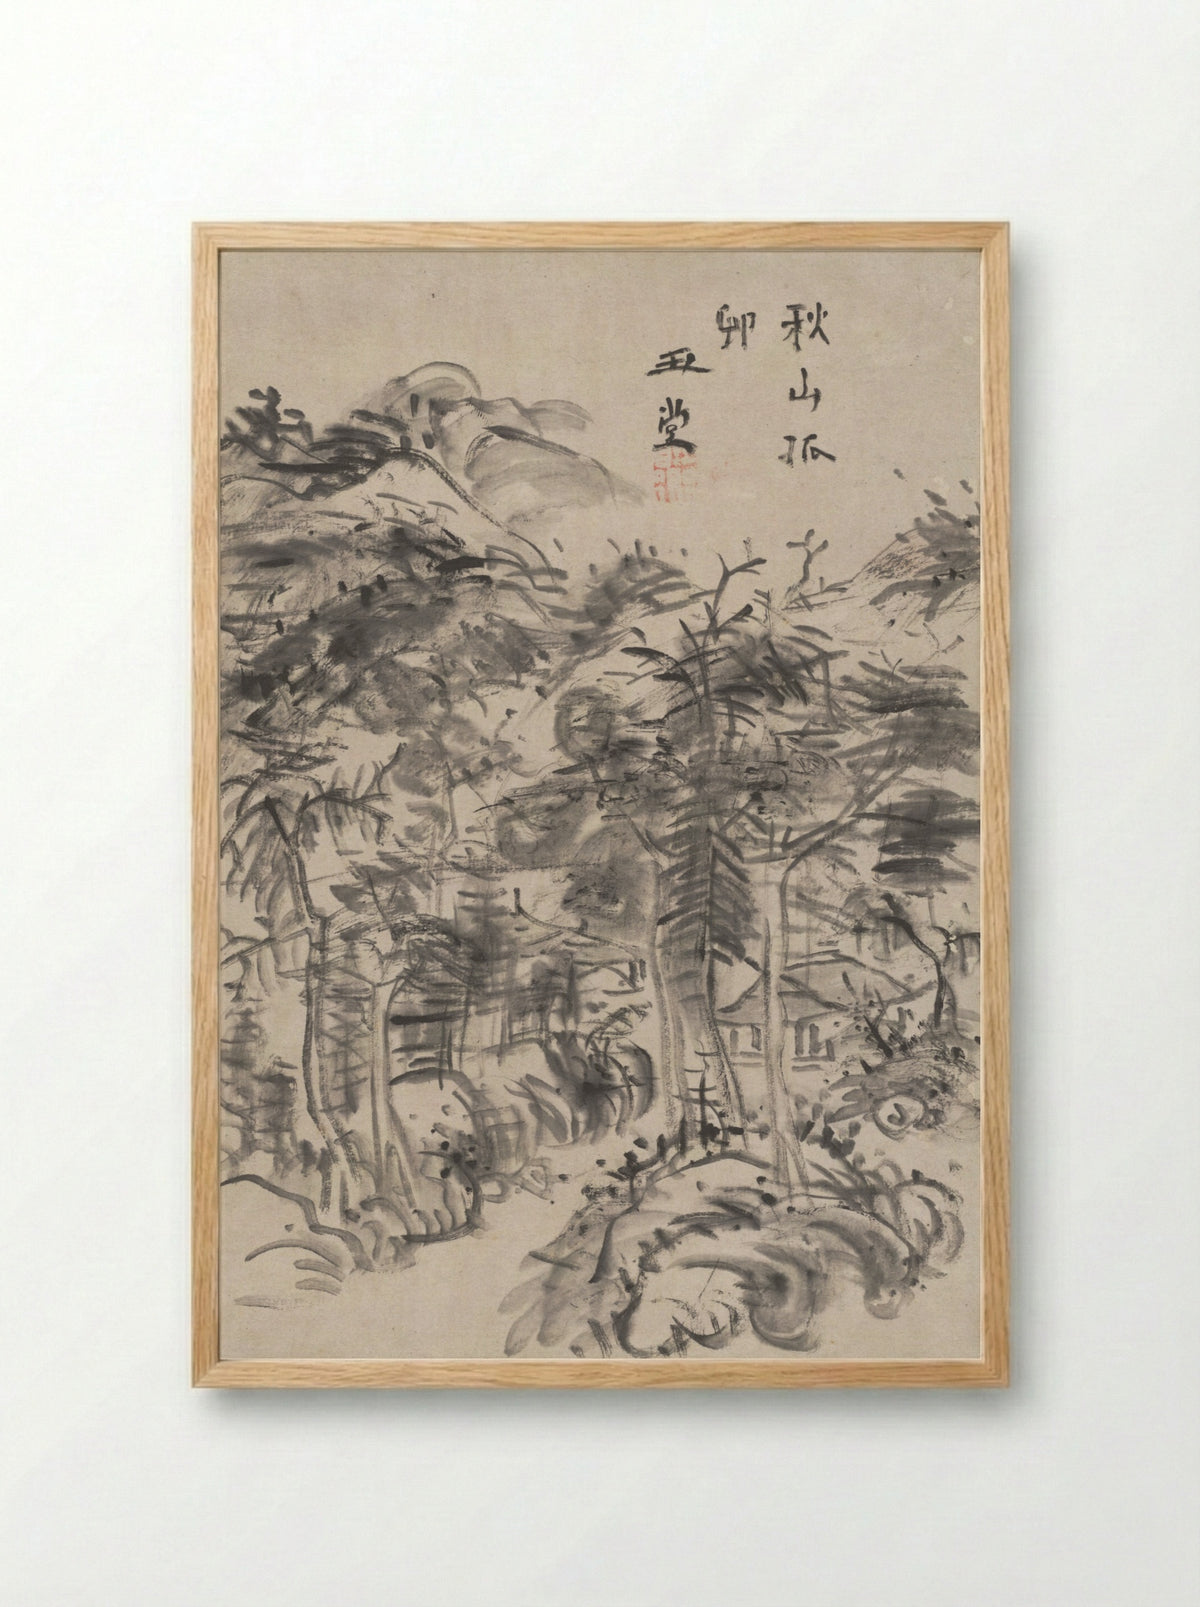 秋山孤
邨
玉堂